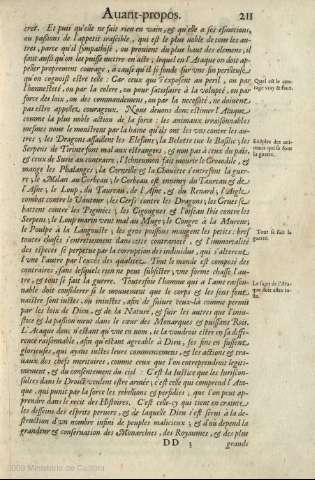 Auant-propos. 211
cret. Et puis qu'elle ne fait rien en vain, & qu'elle a ses esmotions,
ou passions de l'appetit irascible, qui est le plus noble de tous les au-
tres, parce qu'il sympathise, ou prouient du plus haut des elemens, il
faut aussi qu'on les puisse mettre en acte; lequel en l'Ataque on doit ap-
peller proprement courage, à cause qu'il se fonde sur une fin perilleuse
qu'on cognoist estre telle: Car ceux qui s'exposent au peril, ou par
l'honnesteté, ou par la colere, ou pour satisfaire à la volupté, ou par
force des loix, ou des commandemens, ou par la necessité, ne doiuent
pas estre appellez courageux. Nous deuons donc estimer l'Ataque,
comme la plus noble action de la force: les animaux irraisonnables
mesmes nous le monstrent par la haine qu'ils ont les uns contre les au-
tres; les Dragons assaillent les Elefans, la Belette tue le Basilic; les
Serpens de Tirinte font mal aux estrangers, & non pas à ceux du païs,
& ceux de Surie au contraire, l'Ichneumon fait mourir le Crocodile, &
mange les Phalanges, la Corneille & la Chouëtte s'entrefont la guer-
re; le Milan au Corbeau; le Corbeau est ennemy du Taureau & de
l'Asne; le Loup, du Taureau, de l'Asne, & du Renard, l'Aigle
combat contre le Vautour; les Cerfs contre les Dragons; les Grues se
battent contre les Pigmées; les Cigongnes & l'oiseau Ibis contre les
Serpens; le Loup marin veut mal au Muge; le Congre à la Murene;
le Poulpe à la Langouste; les gros poissons mangent les petits: bref
toutes choses s'entretiennent dans ceste contrarieté, & l'immortalité
des especes se perpetue par la corruption des indiuidus, qui s'alterent
l'une l'autre par l'excés des qualitez. Tout le monde est composé des
contraires, sans lesquels rien ne peut subsister, une forme chasse l'au-
tre, & tout se fait la guerre. Toutesfois l'homme qui a l'ame raison-
nable doit considerer si le mouuement que le corps & les sens font
naistre sont iustes, ou iniustes, afin de suiure ceux-là comme permis
par les loix de Dieu, & de la Nature, & fuir les autres que l'iniu-
stice & la passion meut dans le cœur des Monarques & puissans Rois.
L'Ataque donc n'estant qu'une en nom, se la vouloir estre en sa diffe-
rence raisonnable, afin qu'estant agreable à Dieu, ses fins en fussent
glorieuses, qui ayans iustes leurs commencemens, & les actions & tra-
uaux des chefs meritoires, comme ceux que l'on entreprend legiti-
mement, & du consentement du ciel: C'est la Iustice que les Iurison-
sultes dans le Droict veulent estre armée; c'est elle qui comprend l'Ata-
que, qui punit par la force les rebellions & perfidies; que l'on peut ap-
prendre dans le recit des Histoires. C'est celle-cy qui tient en crainte
les desseins des esprits peruers, & de laquelle Dieu s'est serui à la de-
struction d'un nombre infini de peuples malicieux; & d'où depend la
grandeur & conseruation des Monarchies, des Royaumes, & des plus
DD 3 grands
Quel est le cou-
rage vray & faux.
Exemples des ani-
maux qui se font
la guerre.
Tout se fait la
guerre.
Le suget de l'Ata-
que doit estre iu-
ste.
2009 Ministerio de Cultura